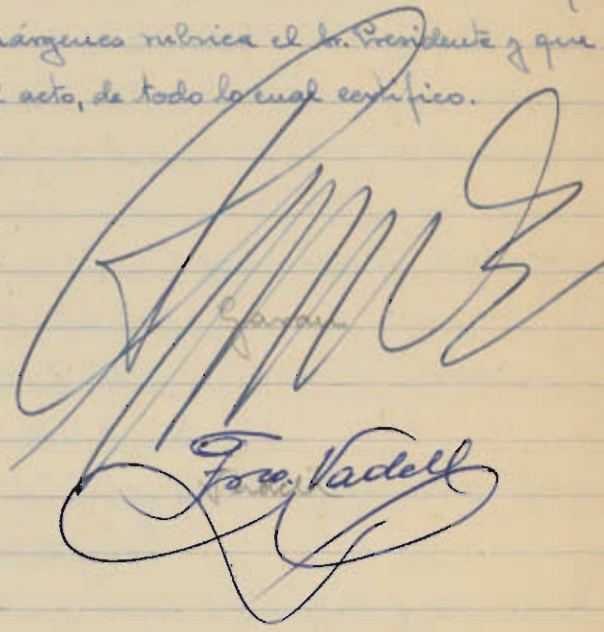 márgenes rubrica el Sr. Presidente y que
acto, de todo lo cual certifico.
Garau
Fco. Vadell